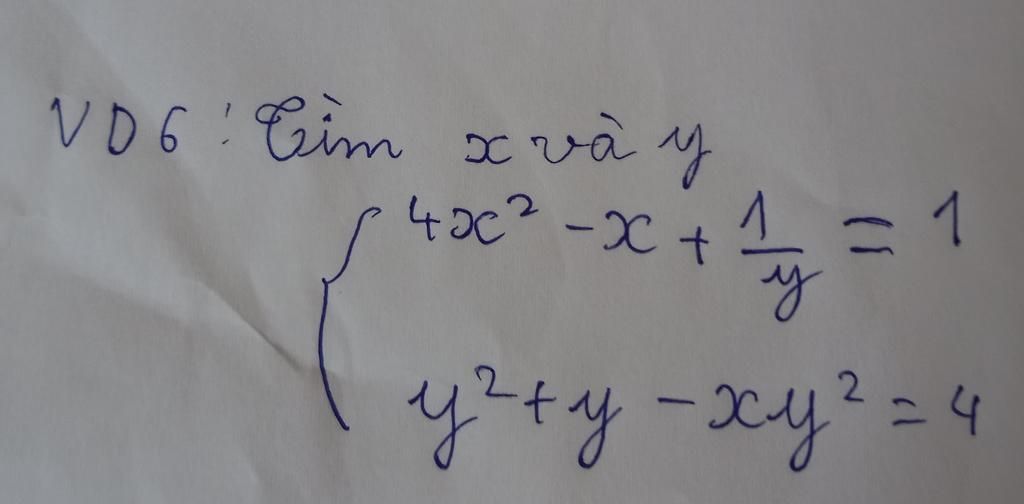 VD6: Tìm x và y
4x² - x + 1/y = 1
y² + y - xy² = 4